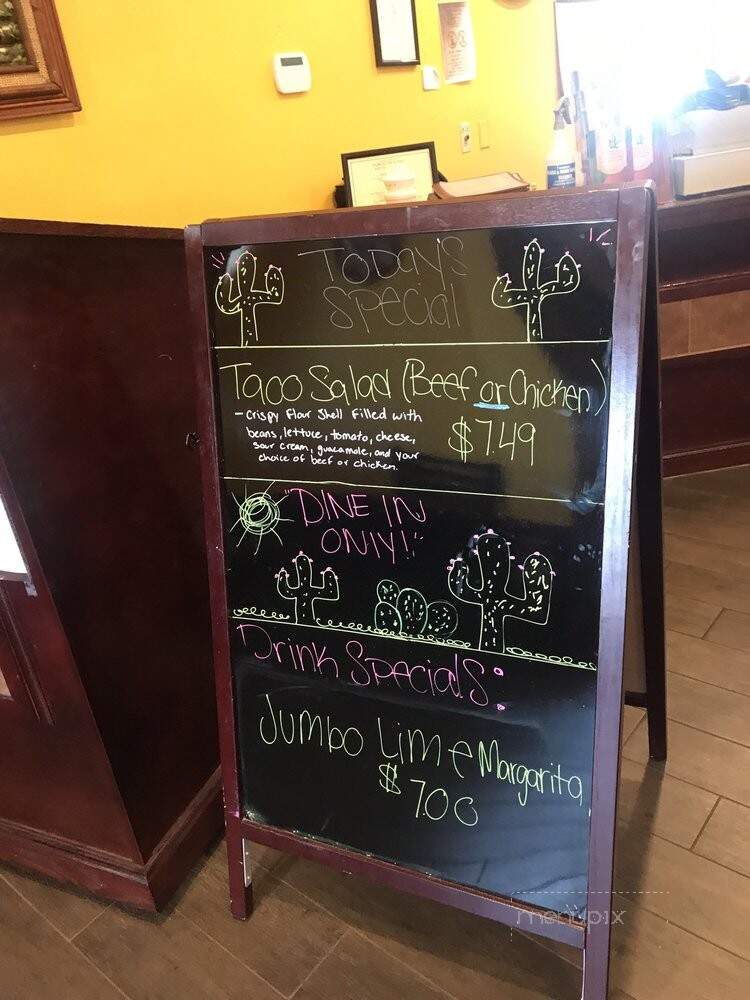 TODAY'S
SPECIAL
Taco Salad (Beef or Chicken)
- Crispy Flour Shell filled with
beans, lettuce, tomato, cheese,
sour cream, guacamole, and your
choice of beef or chicken.
$7.49
"DINE IN
ONLY!"
Drink Specials:
Jumbo Lime Margarita
$7.00
menupix